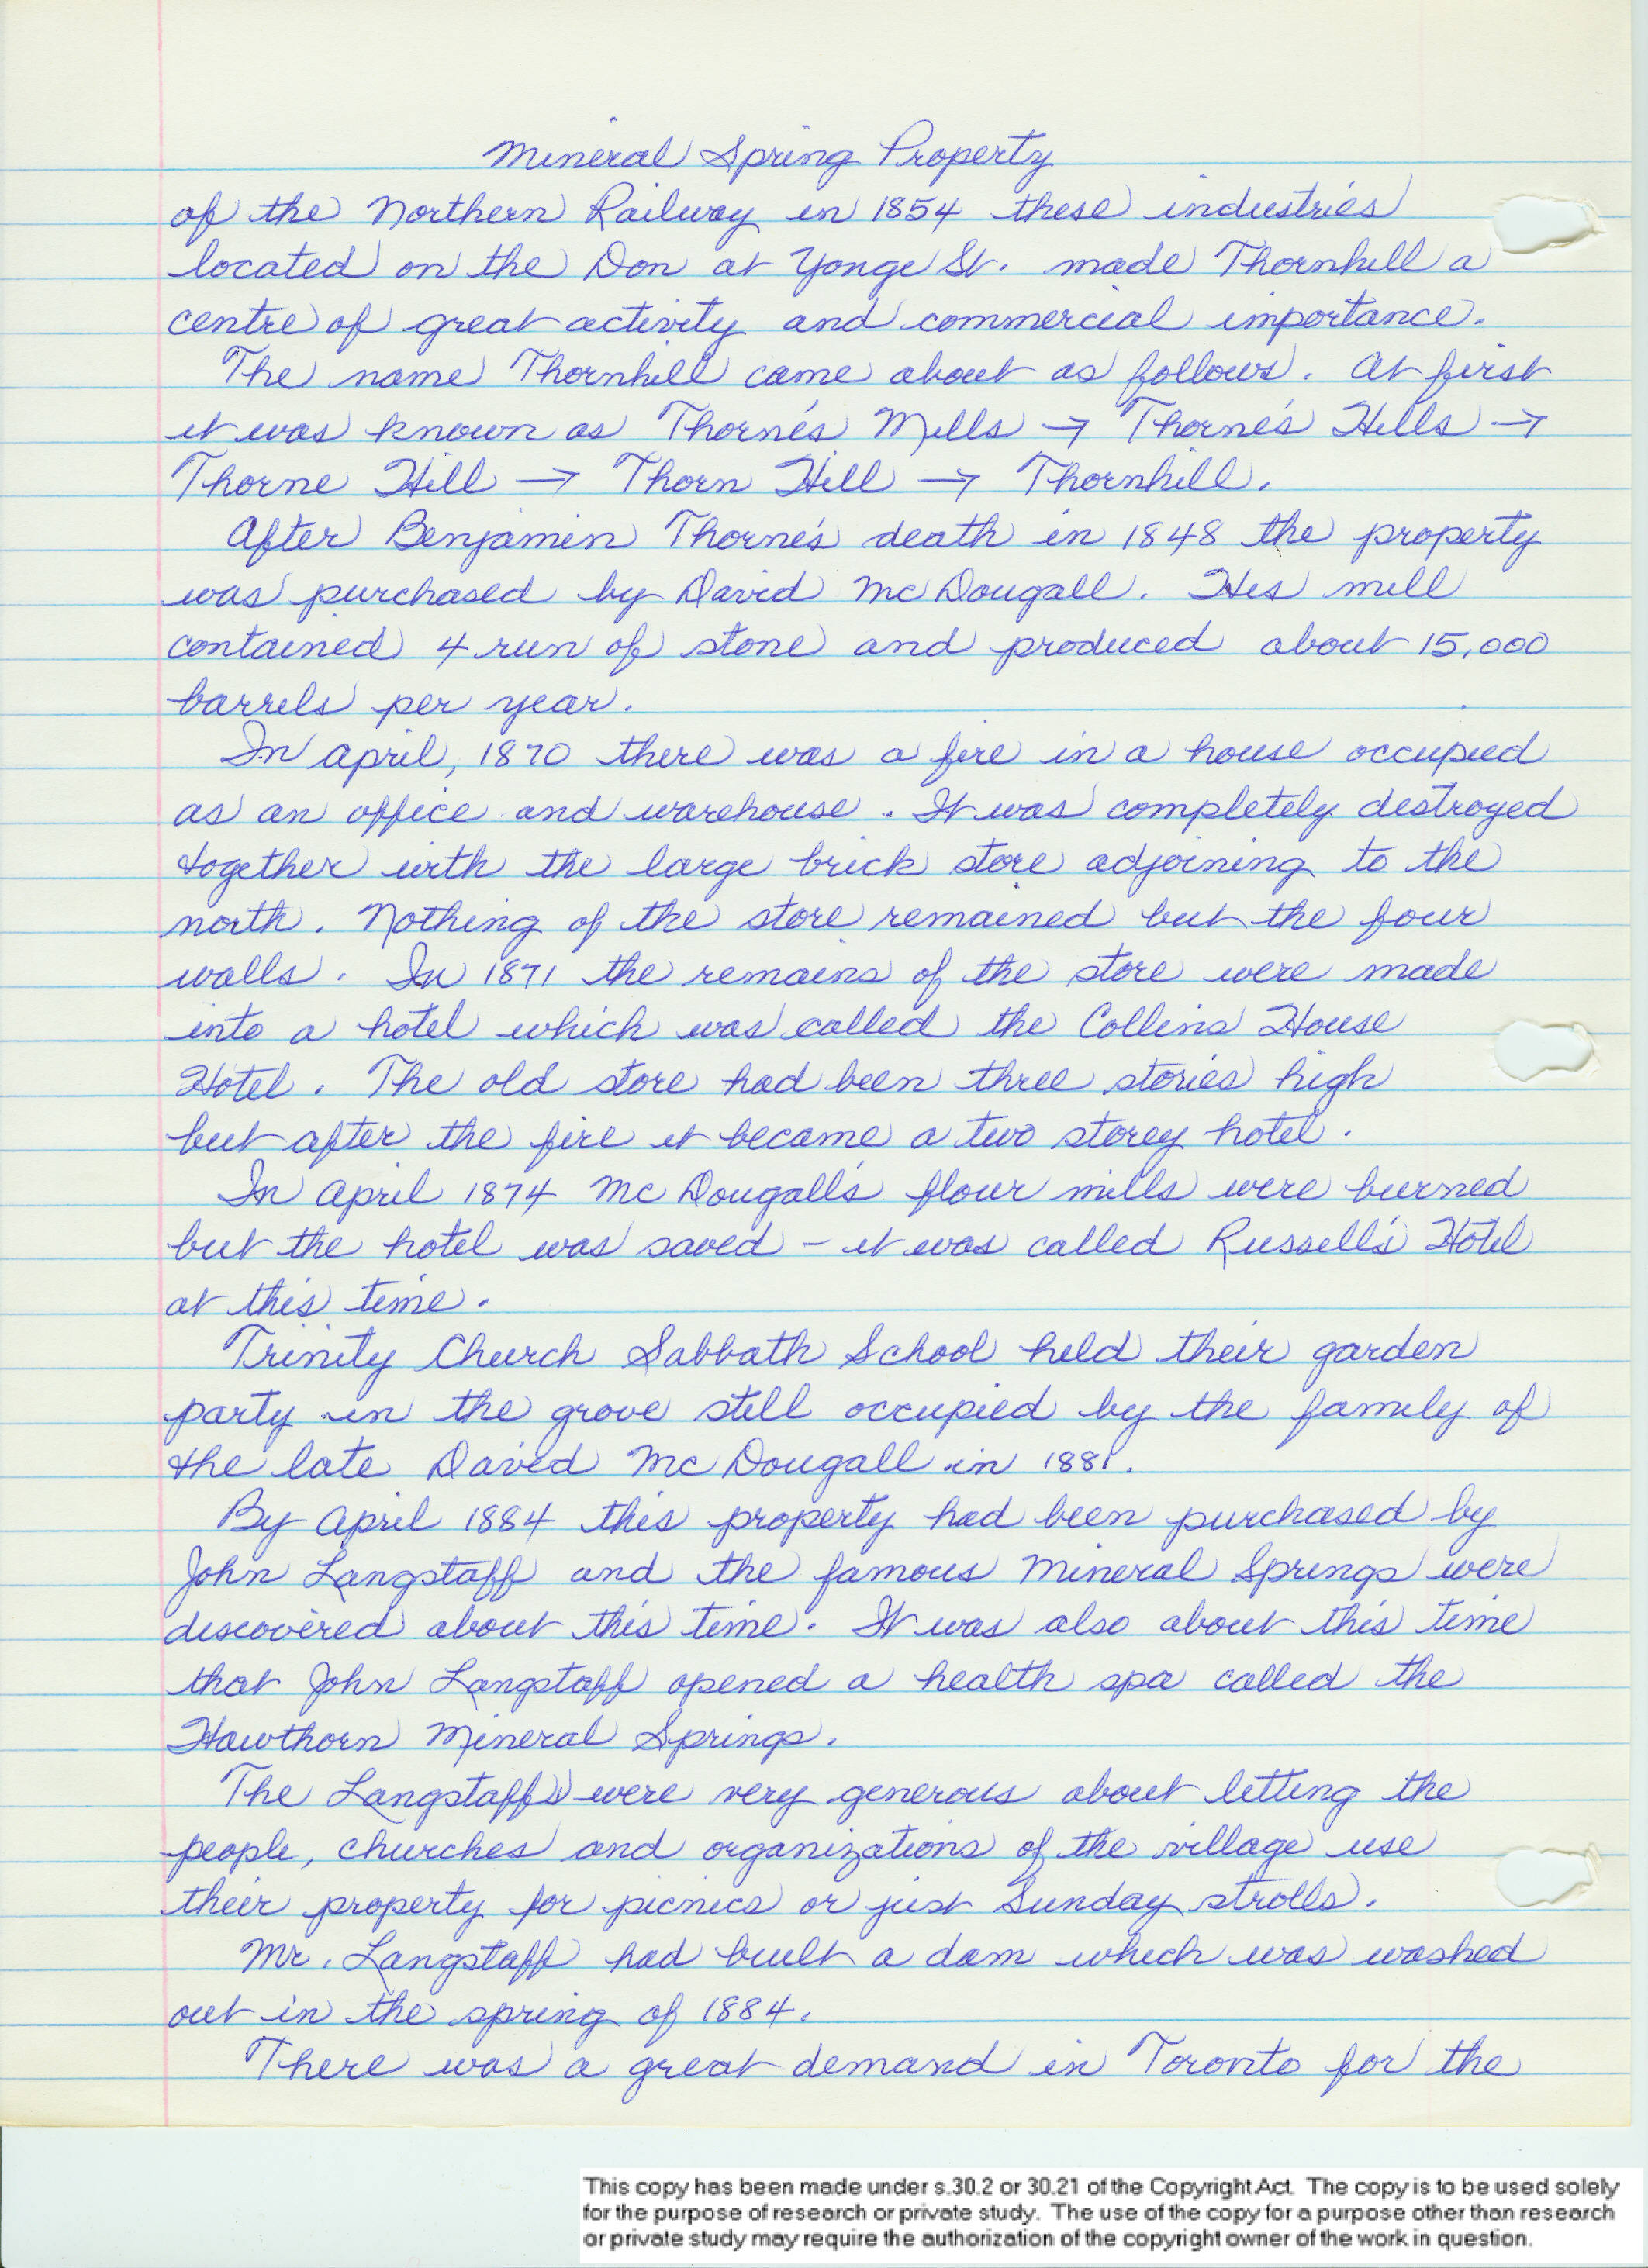 Mineral Spring Property
of the Northern Railway in 1854 these industries
located on the Don at Yonge St. made Thornhill a
centre of great activity and commercial importance.
The name Thornhill came about as follows. At first
it was known as Thorne's Mills → Thorne's Hills →
Thorne Hill → Thorn Hill → Thornhill.
After Benjamin Thorne's death in 1848 the property
was purchased by David McDougall. His mill
contained 4 run of stone and produced about 15,000
barrels per year.
In April, 1870 there was a fire in a house occupied
as an office and warehouse. It was completely destroyed
together with the large brick store adjoining to the
north. Nothing of the store remained but the four
walls. In 1871 the remains of the store were made
into a hotel which was called the Collins House
Hotel. The old store had been three stories high
but after the fire it became a two storey hotel.
In April 1874 McDougall's flour mills were burned
but the hotel was saved - it was called Russell's Hotel
at this time.
Trinity Church Sabbath School held their garden
party in the grove still occupied by the family of
the late David McDougall in 1881.
By April 1884 this property had been purchased by
John Langstaff and the famous Mineral Springs were
discovered about this time. It was also about this time
that John Langstaff opened a health spa called the
Hawthorn Mineral Springs.
The Langstaffs were very generous about letting the
people, churches and organizations of the village use
their property for picnics or just Sunday strolls.
Mr. Langstaff had built a dam which was washed
out in the spring of 1884.
There was a great demand in Toronto for the
This copy has been made under s.30.2 or 30.21 of the Copyright Act. The copy is to be used solely
for the purpose of research or private study. The use of the copy for a purpose other than research
or private study may require the authorization of the copyright owner of the work in question.